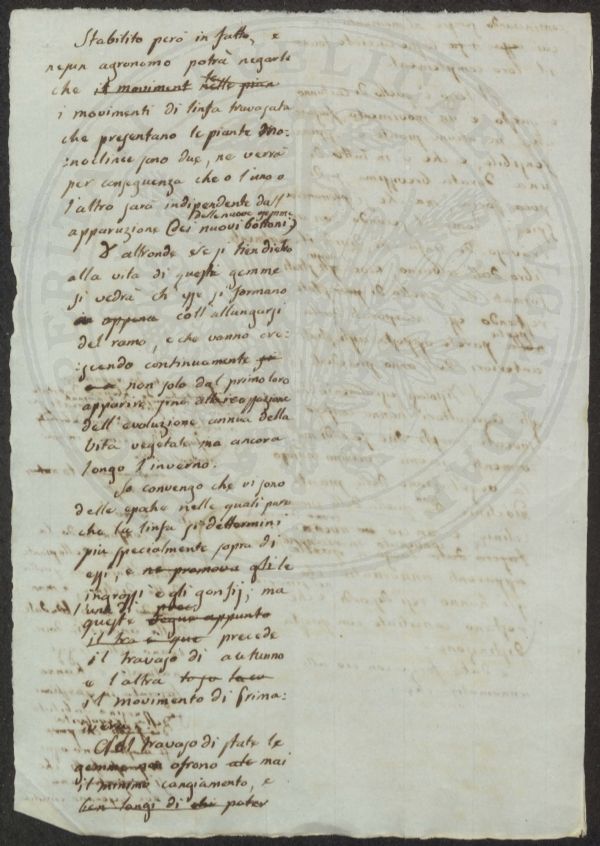 Stabilito però in fatto, e
nepun agronomo potrà negarlo
che il moviment nelle pian
i movimenti di linfa travasata
che presentano le piante Mo:
:noclinee sono due, ne verrà
per conseguenza che o l'uno o
l'altro sarà indipendente dall'
apparuzione (dei nuovi bottoni)
delle nuove gemme
D'altronde se si tien dietro
alla vita di queste gemme
si vedrà ch'esse si formano
appena coll'allungarsi
del ramo, e che vanno cre:
:scendo continuamente
non solo dal primo loro
apparire fino alla cessazione
dell'evoluzione annua della
vita vegetale ma ancora
lungo l'inverno.
Io convengo che vi sono
delle epoche nelle quali pare
che la linfa si determini
più specialmente sopra di
essi, e ne promova gli le
ingrossi e gli gonfij; ma
l'una di
queste appunto
il tra è que precede
il travaso di autunno
e l'altra
il movimento di Prima:
:vera.
Dal travaso di state le
gemme non ofrono ate mai
il minimo cangiamento, e
ben lungi di poter